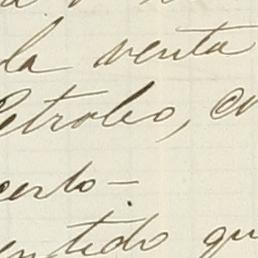 la venta
Petroleo, en
cesto-
entido qu